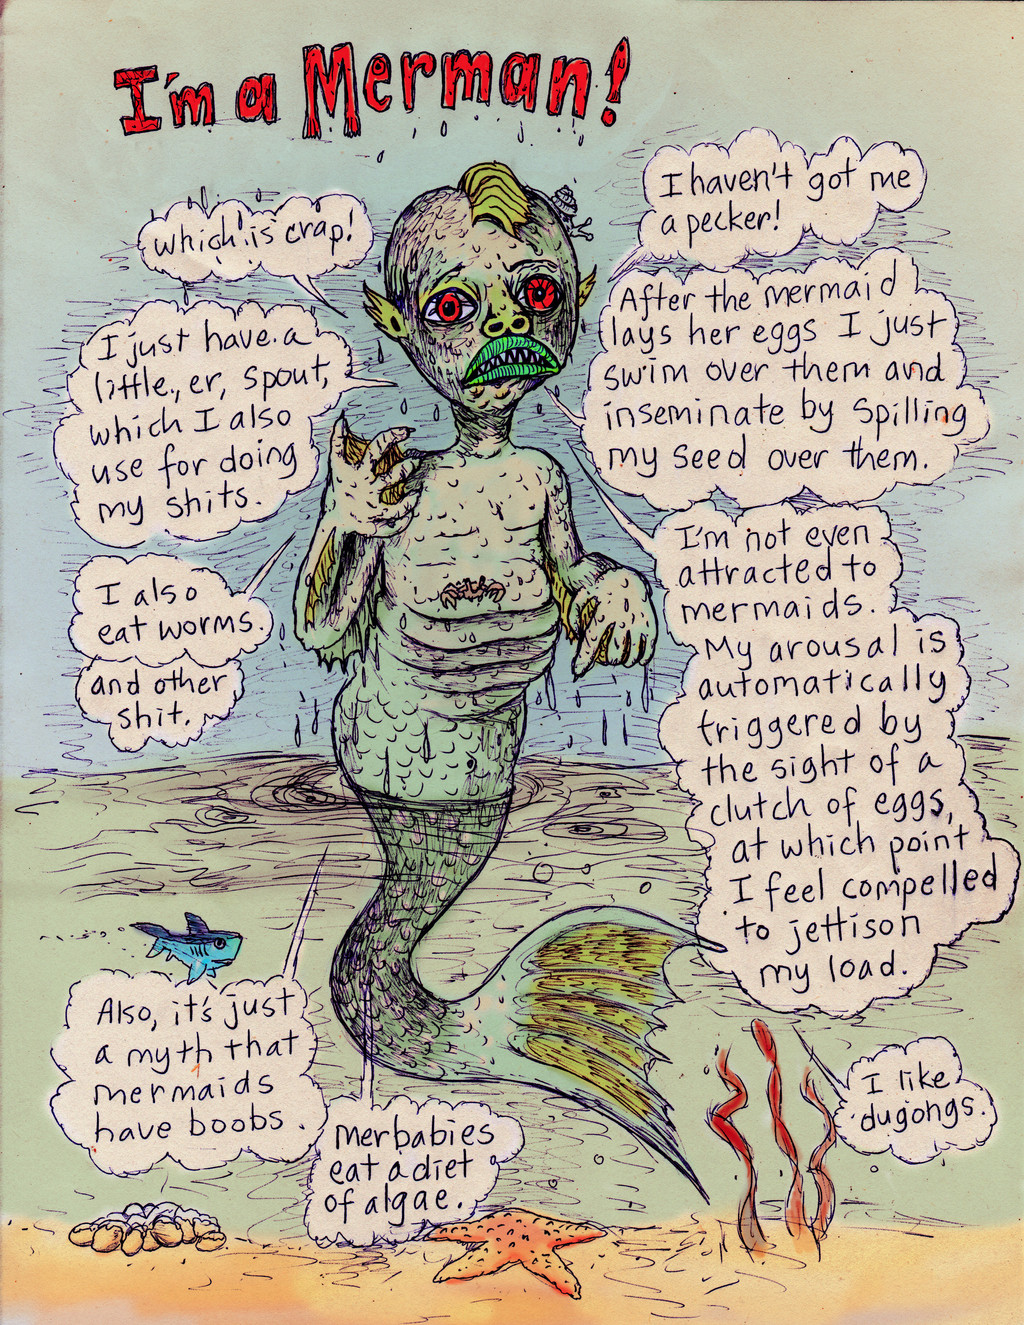 I'm a Merman!
I haven't got me
a pecker!
which is crap!
I just have a
little, er, spout,
which I also
use for doing
my shits.
After the mermaid
lays her eggs I just
swim over them and
inseminate by spilling
my seed over them.
I also
eat worms.
and other
shit.
I'm not even
attracted to
mermaids.
My arousal is
automatically
triggered by
the sight of a
clutch of eggs,
at which point
I feel compelled
to jettison
my load.
Also, it's just
a myth that
mermaids
have boobs.
Merbabies
eat a diet
of algae.
I like
dugongs.